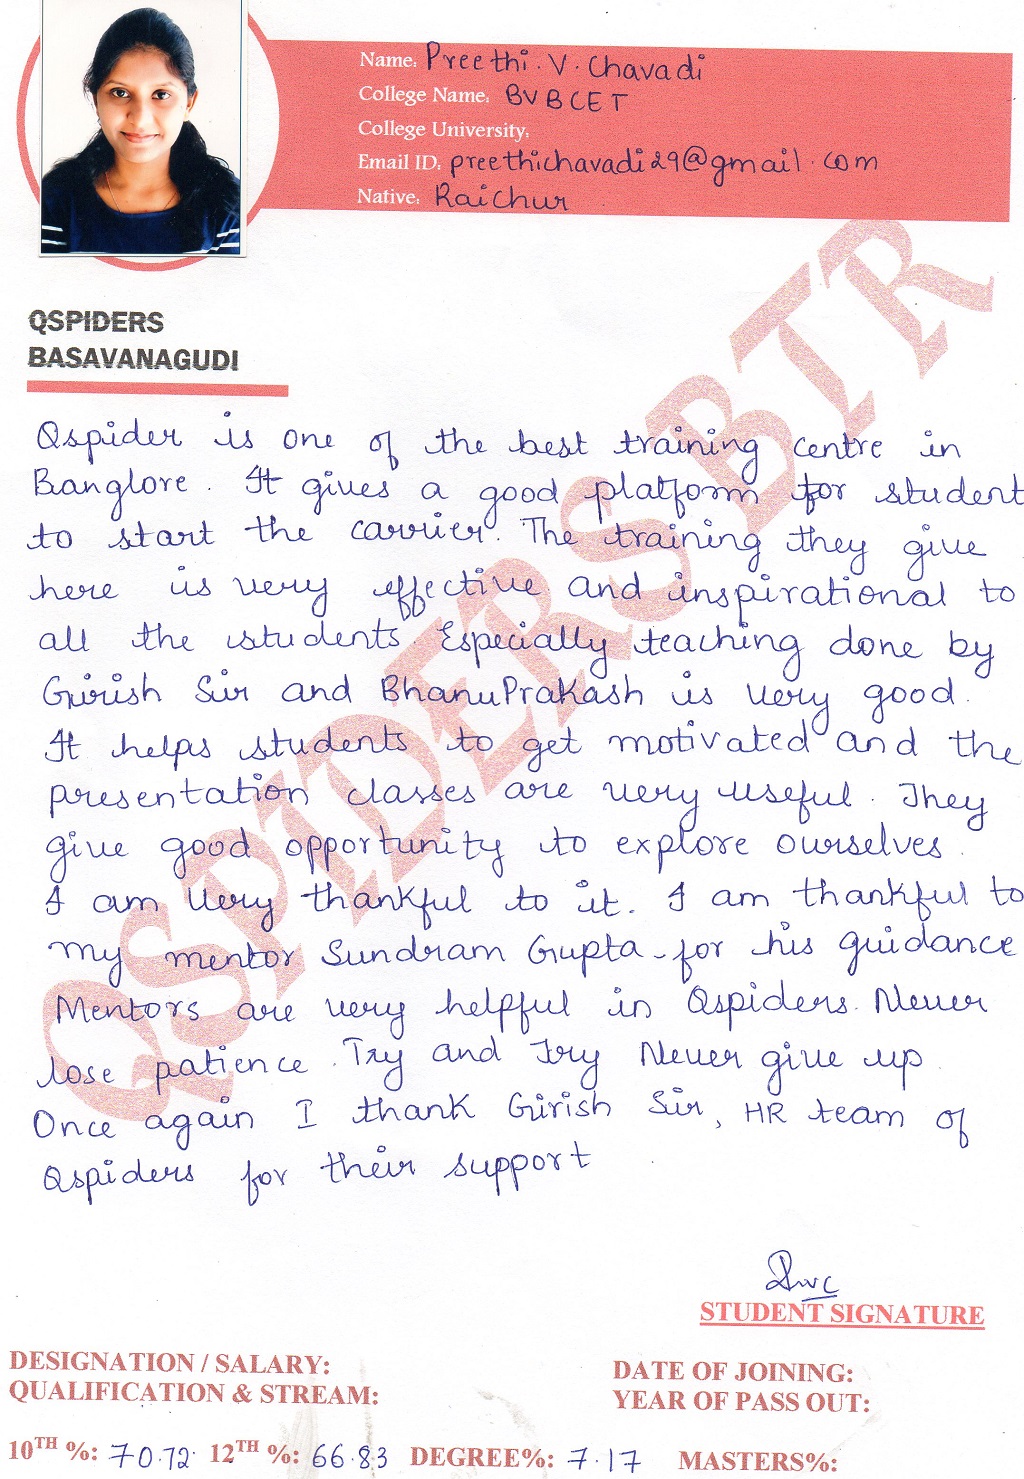 Name: Preethi. V. Chavadi
College Name: BVBCET
College University:
Email ID: preethichavadi29@gmail.com
Native: Raichur
QSPIDERS
BASAVANAGUDI
Qspider is one of the best training centre in
Banglore. It gives a good platform for student
to start the carrier. The training they give
here is very effective and inspirational to
all the students. Especially teaching done by
Girish Sir and BhanuPrakash is very good.
It helps students to get motivated and the
presentation classes are very useful. They
give good opportunity to explore ourselves.
I am very thankful to it. I am thankful to
my mentor Sundram Gupta for his guidance
Mentors are very helpful in Qspiders. Never
lose patience. Try and Try Never give up.
Once again I thank Girish Sir, HR team of
Qspiders for their support
QSPIDERS BTR
STUDENT SIGNATURE
DESIGNATION / SALARY: DATE OF JOINING:
QUALIFICATION & STREAM: YEAR OF PASS OUT:
10TH %: 70.72. 12TH %: 66.83 DEGREE%: 7.17 MASTERS%: